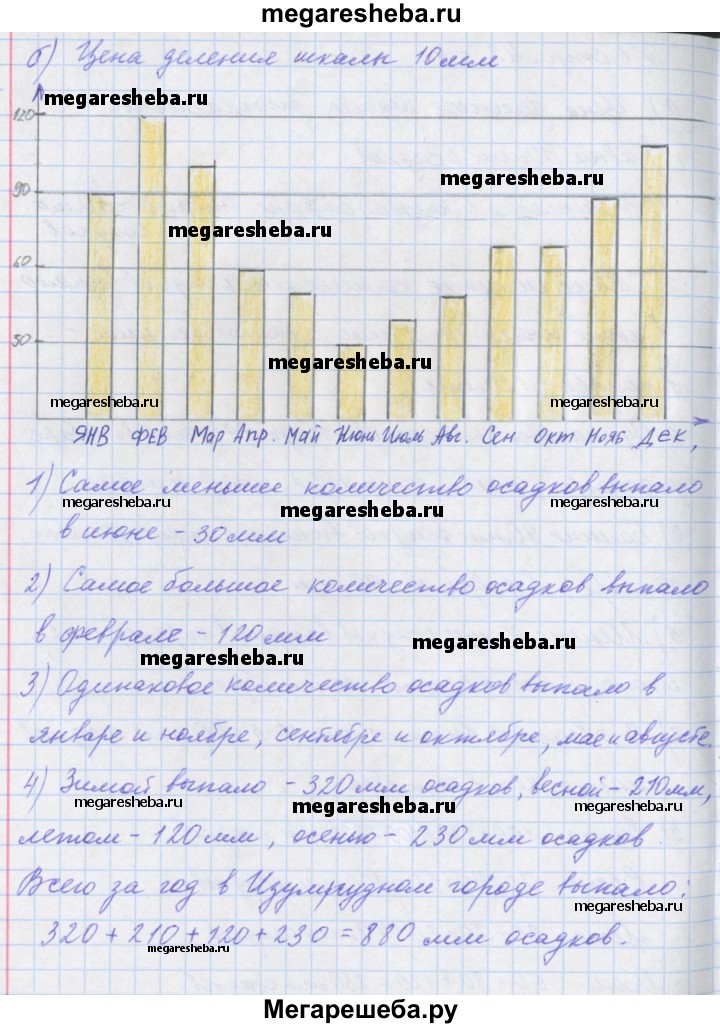 megaresheba.ru
б) Цена деления шкалы 10мм
megaresheba.ru
120
90
megaresheba.ru
megaresheba.ru
60
megaresheba.ru
30
megaresheba.ru
megaresheba.ru
ЯНВ ФЕВ Мар Апр. Май Июнь Июль Авг. Сен Окт Нояб Дек,
1) Самое меньшее количество осадков выпало
megaresheba.ru
megaresheba.ru
megaresheba.ru
в июне - 30мм
2) Самое большое количество осадков выпало
в феврале - 120мм
megaresheba.ru
megaresheba.ru
3) Одинаковое количество осадков выпало в
январе и ноябре, сентябре и октябре, мае и августе.
4) Зимой выпало - 320мм осадков, весной - 210мм,
megaresheba.ru
megaresheba.ru
megaresheba.ru
летом - 120мм, осенью - 230мм осадков.
Всего за год в Изумрудном городе выпало:
megaresheba.ru
320 + 210 + 120 + 230 = 880 мм осадков.
megaresheba.ru
Мегарешеба.ру